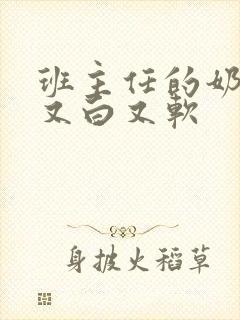 班主任的奶
又白又软
身披火稻草